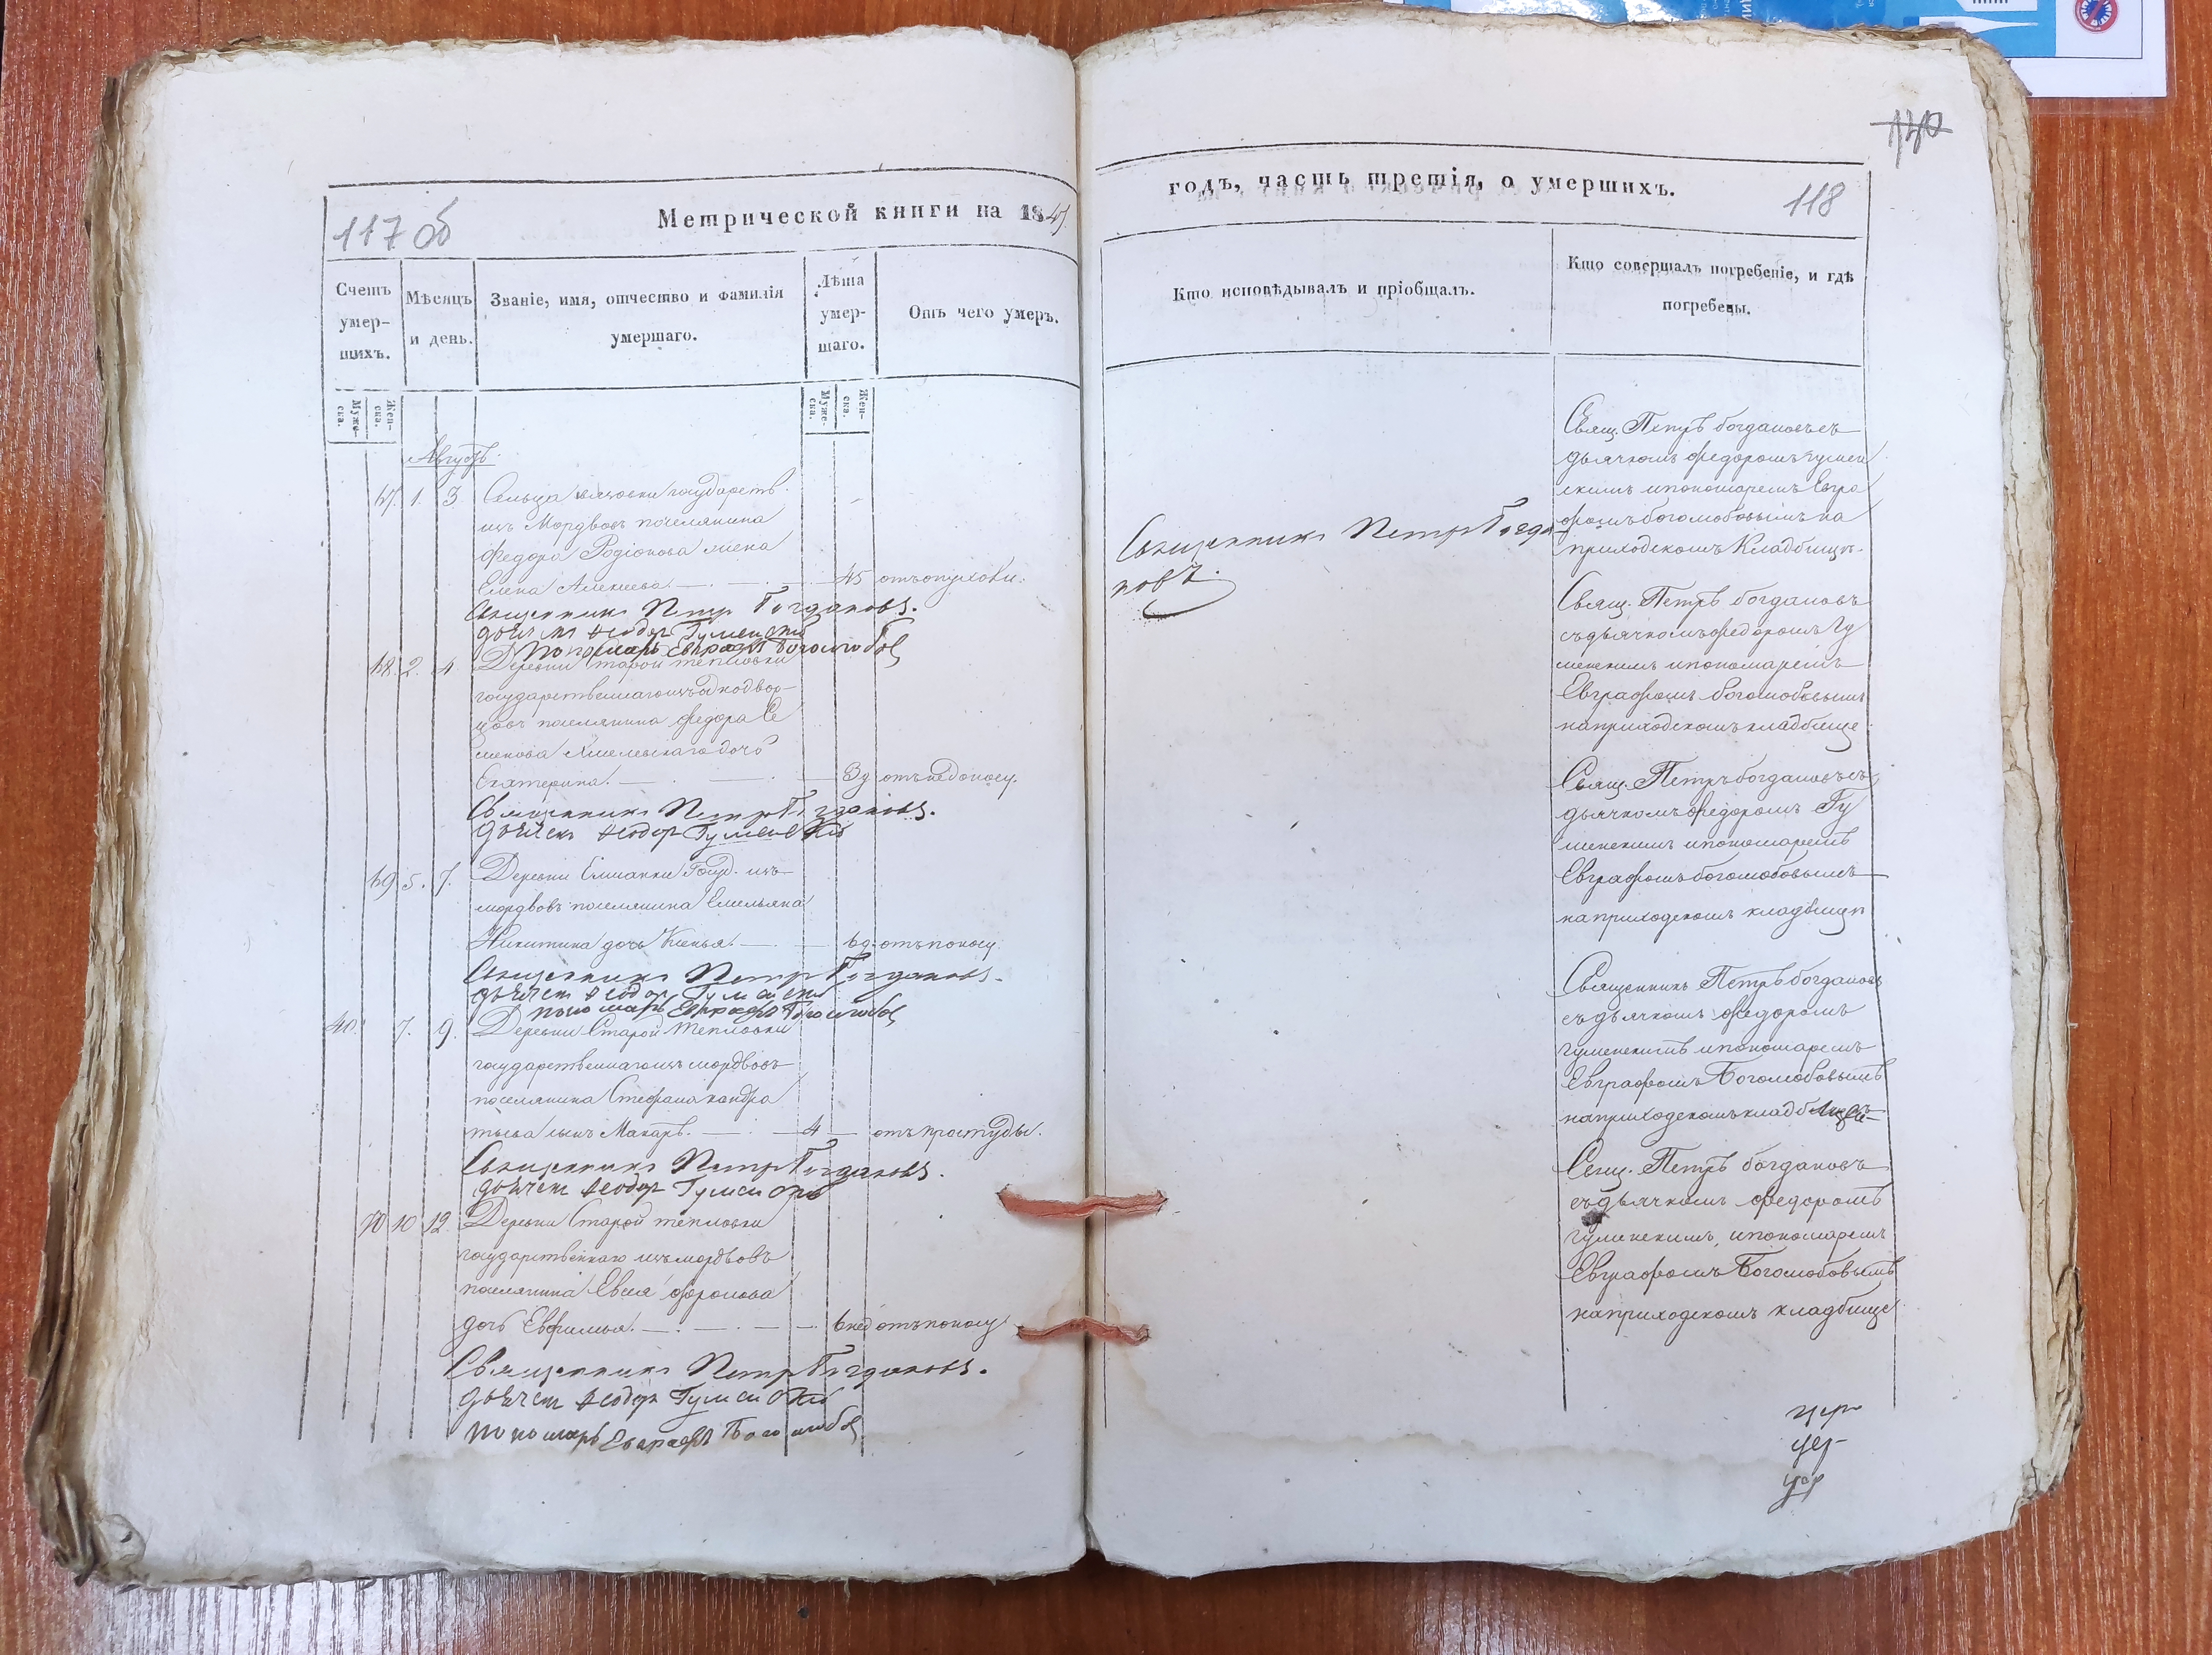 117 об
Метрической книги на 1847.
Счетъ умерших.
Мѣсяцъ и день.
Званіе, имя, отчество и фамилія умершаго.
Лѣта умершаго.
Отъ чего умеръ.
Муже-ска.
Жен-ска.
Муже-ска.
Жен-ска.
Августъ.
67. 1. 3
Сельца государств.
изъ Мордвовъ поселянина
Федора Родіонова жена
Елена Алексеева. 45 отъ опухоли.
Священникъ Петръ Богдановъ.
дьячекъ Феодоръ Гуменскій
пономарь Евграфъ Боголюбов
68. 2. 4
Деревни Старой тепловки
государственнаго изъ однодвор-
цовъ поселянина Федора Се
менова Хмелевскаго дочь
Екатерина. 3д отъ недоносу.
Священникъ Петръ Богдановъ.
дьячекъ Феодоръ Гуменскій
69. 5. 7.
Деревни Елшанки Госуд. изъ
мордвовъ поселянина Емельяна
Никитина дочь Ксенья. 6д. отъ поносу.
Священникъ Петръ Богдановъ.
дьячекъ Феодоръ Гуменскій
пономарь Евграфъ Боголюбов
40. 7. 9.
Деревни Старой тепловки
государственнаго изъ мордвовъ
поселянина Стефана Кандра
тьева сынъ Макаръ. 4 отъ простуды.
Священникъ Петръ Богдановъ.
дьячекъ Феодоръ Гуменскій
70 10 12
Деревни Старой тепловки
государственнаго изъ мордвовъ
поселянина Евсея Фролова
дочь Евфимья. 6нед отъ поносу
Священникъ Петръ Богдановъ.
дьячекъ Феодоръ Гуменскій
пономарь Евграфъ Боголюбов
годъ, часть третія, о умершихъ.
118
Кто исповѣдывалъ и пріобщалъ.
Кто совершалъ погребеніе, и гдѣ погребены.
Священникъ Петръ Богда
новъ.
Свящ. Петръ богдановъ съ
дьячкомъ Федоромъ гумен
скимъ и пономаремъ Евгра
фомъ боголюбовымъ на
приходскомъ Кладбищѣ.
Свящ. Петръ богдановъ
съ дьячкомъ Федоромъ Гу
менскимъ и пономаремъ
Евграфомъ боголюбовымъ
на приходскомъ кладбище.
Свящ. Петръ богдановъ съ
дьячкомъ Федоромъ Гу
менскимъ и пономаремъ
Евграфомъ боголюбовымъ
на приходскомъ кладбищѣ
Священникъ Петръ богдановъ
съ дьячкомъ Федоромъ
гуменскимъ и пономаремъ
Евграфомъ Боголюбовымъ
на приходскомъ кладбищѣ
Свящ. Петръ богдановъ
съ дьячкомъ Федоромъ
гуменскимъ, и пономаремъ
Евграфомъ Боголюбовымъ
на приходскомъ кладбище